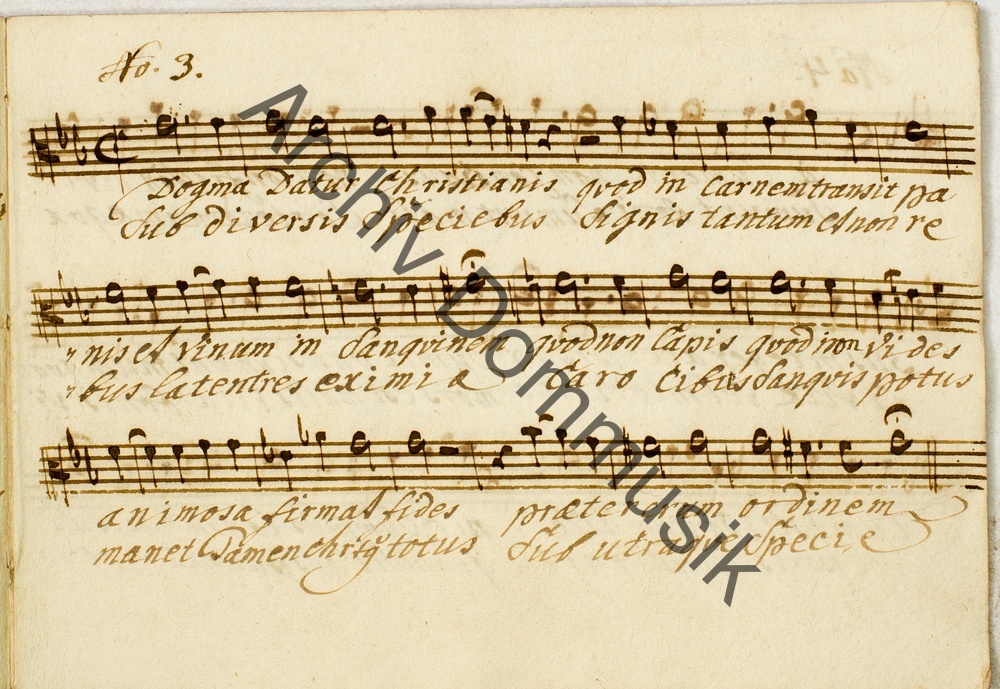 No. 3.
Dogma Datur Christianis quod in Carnem transit pa
Sub diversis Speciebus Signis tantum et non re
nis et vinum in Sanquinem quod non Capis quod non Vi des
bus latent res eximi æ Caro Cibus Sanquis potus
animosa firmat fides præter rerum ordinem
manet Tamen totus Sub utraque Specie
Archiv Dommusik